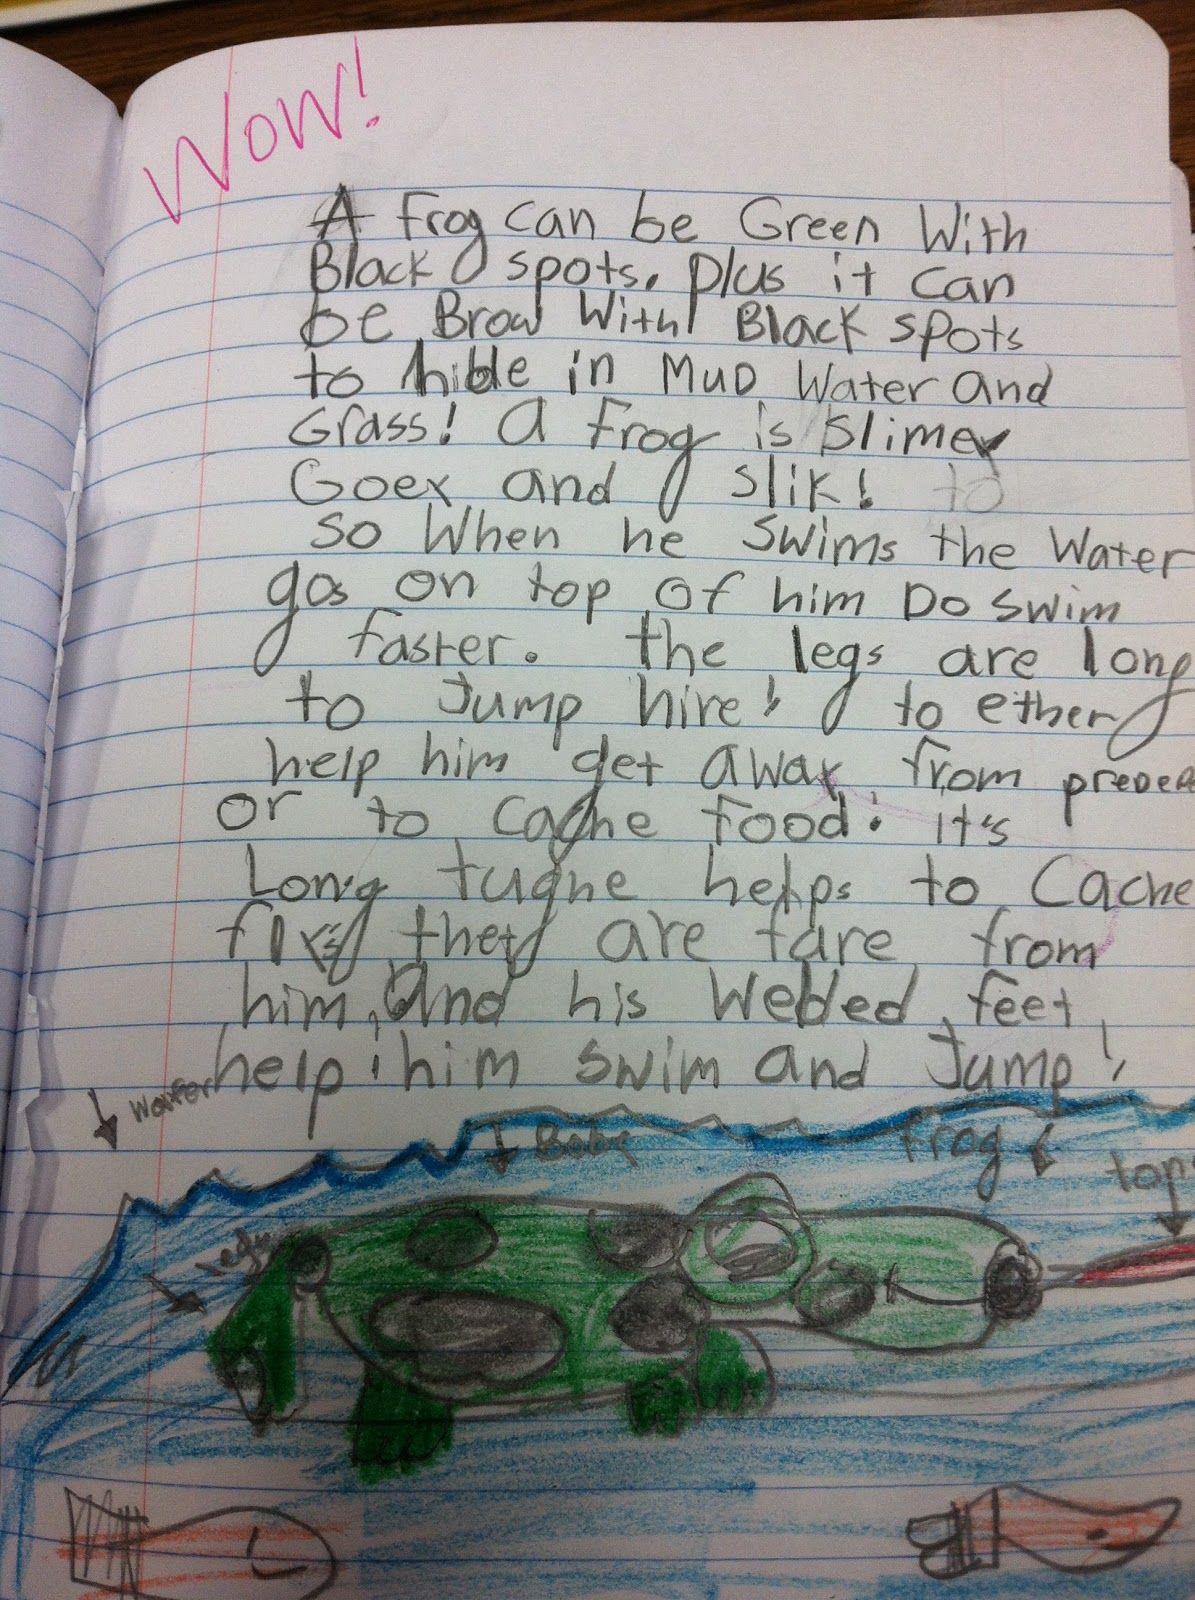 Wow!
A frog can be Green With
Black spots. plus it can
be Brow With Black spots
to hide in MUD Water and
Grass! a frog is slimey
Goey and slik! to
so When he swims the Water
gos on top of him Do swim
faster. the legs are long
to Jump hire! to ether
help him get away from
or to cache food. it's
Long tugne helps to Cache
flys they are fare from
him, and his Webbed feet
help him swim and Jump!
Water
Body
frog
legs